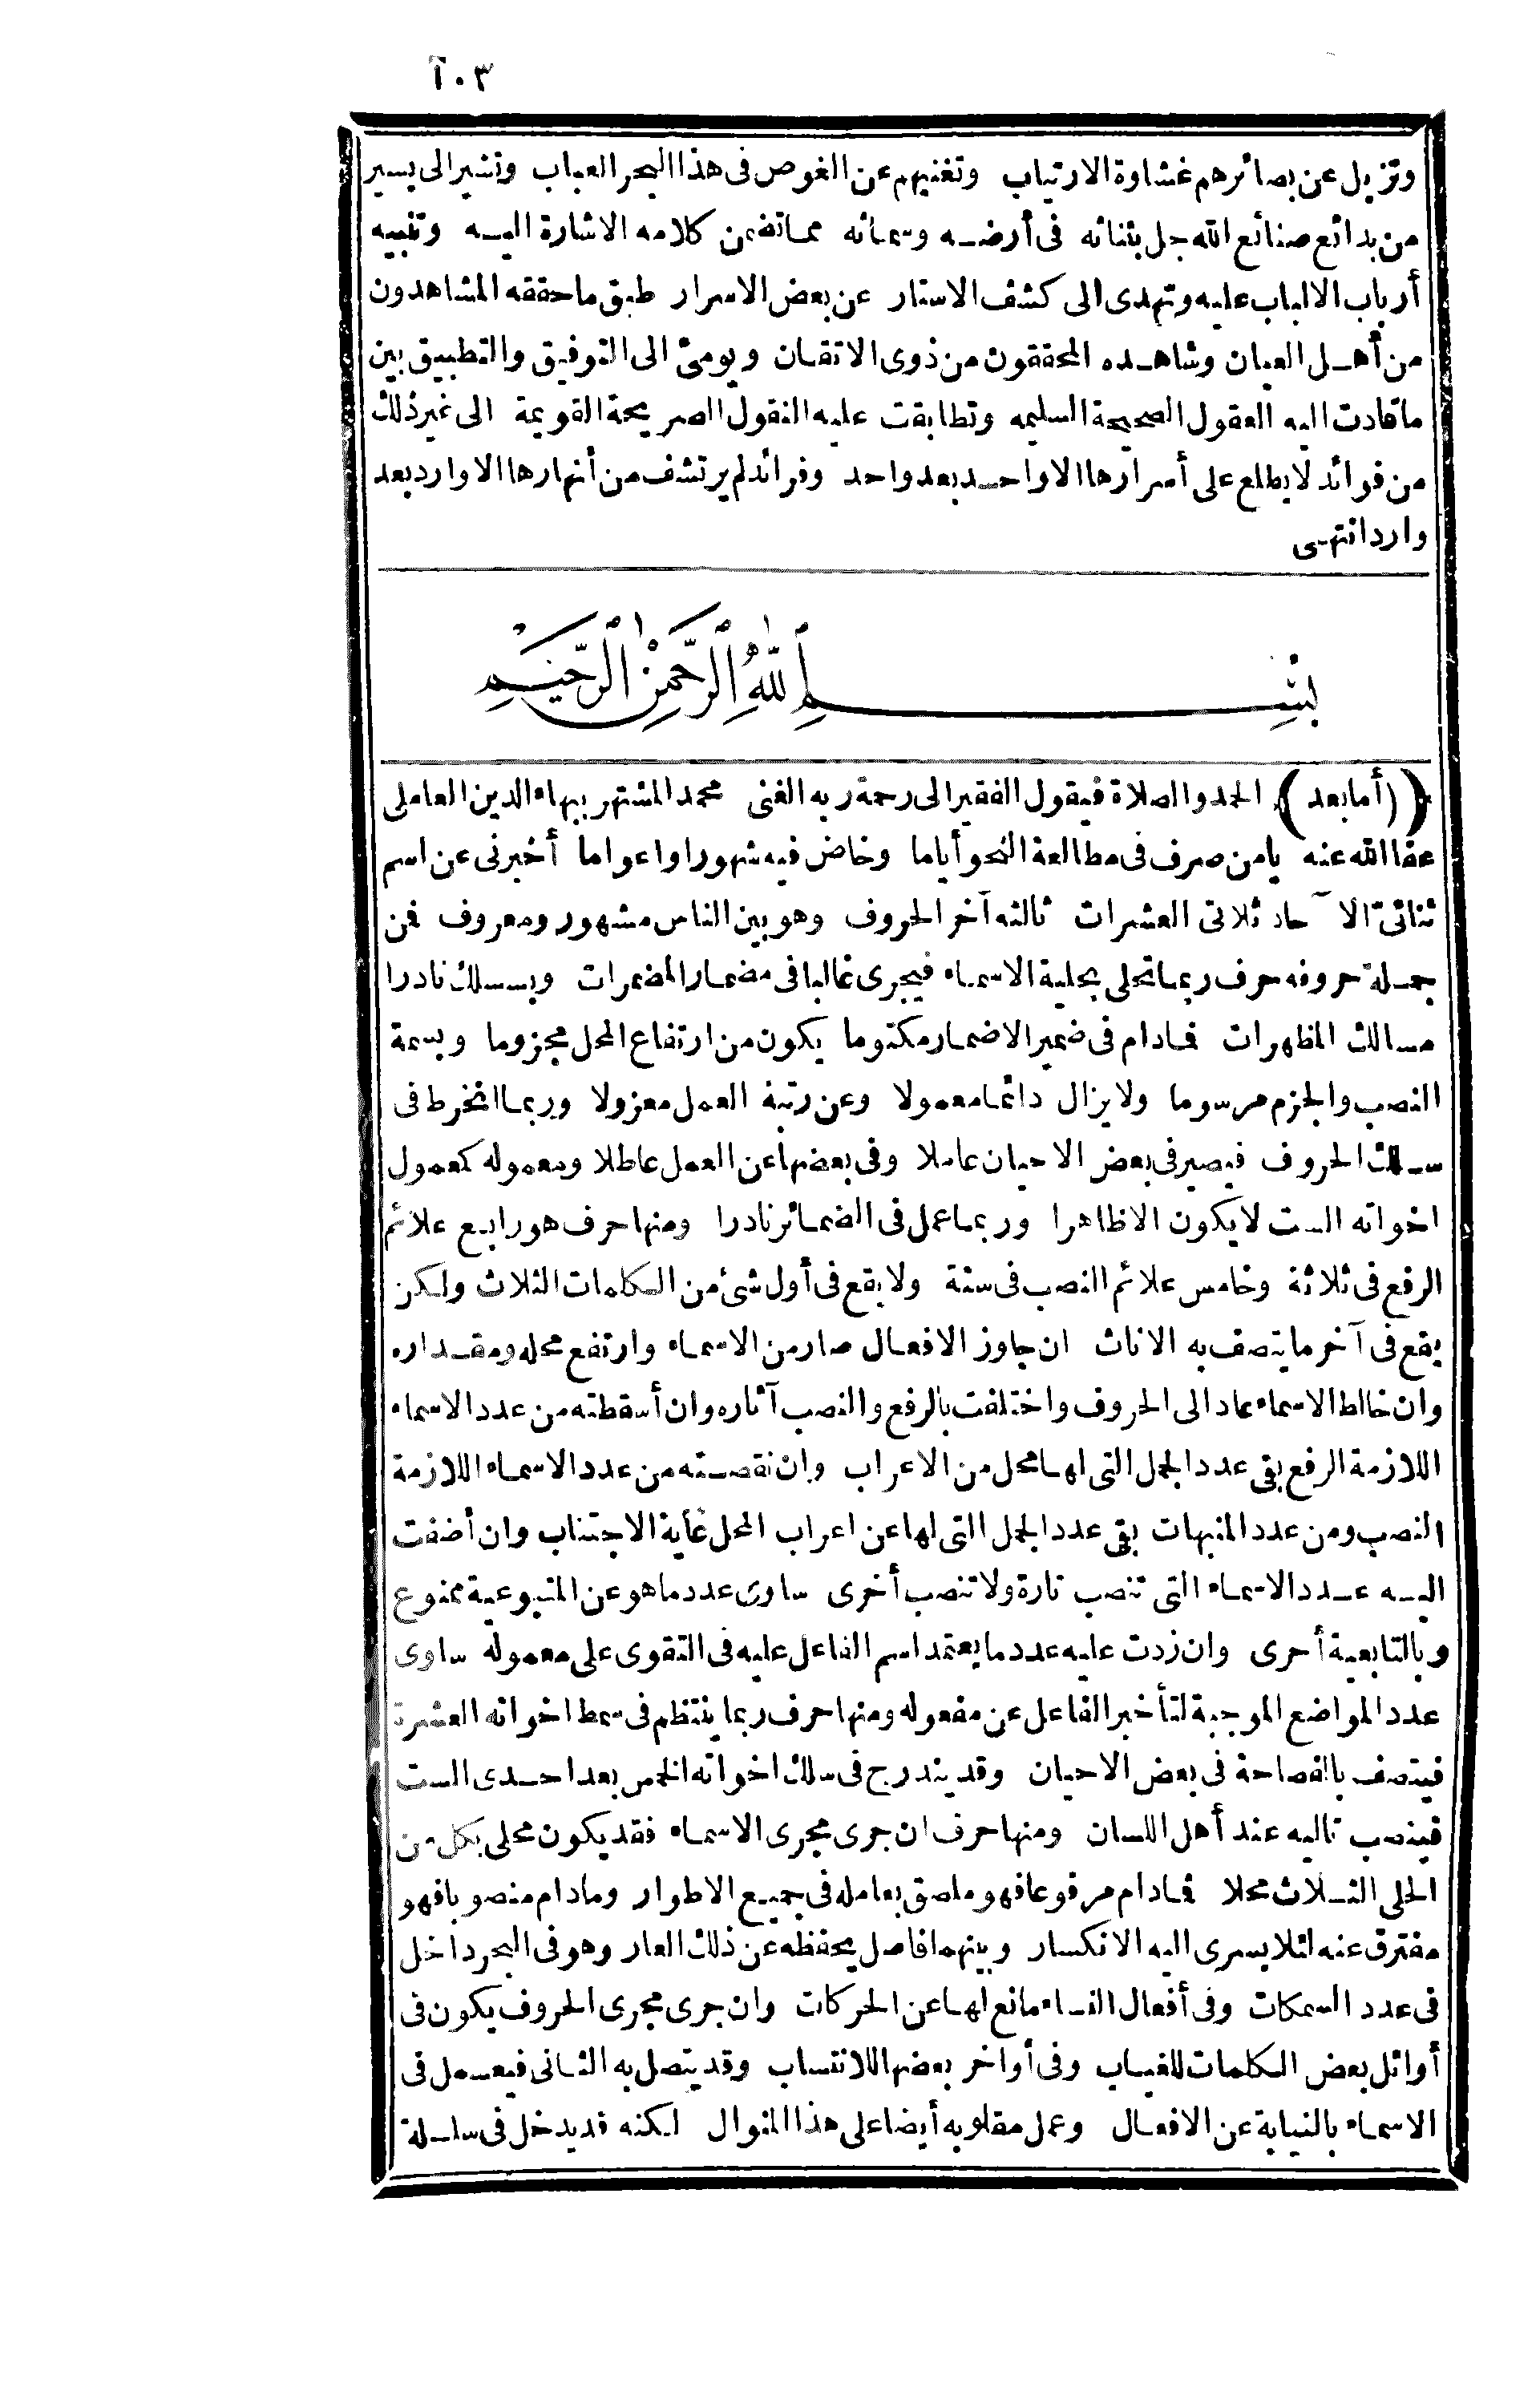 ٣٠٦
وتزيل عن بصائرهم غشاوة الارتياب وتغنيهم عن الغوص فى هذا البحر العباب وتشير الى يسير
من بدائع صنائع الله جل بثنائه فى أرضه وسمائه مما تضمن كلامه الاشارة اليه وتنبيه
أرباب الالباب عليه وتهدى الى كشف الاستار عن بعض الاسرار طبق ما حققه المشاهدون
من أهل العيان وشاهده المحققون من ذوى الاتقان ويومئ الى التوفيق والتطبيق بين
ما قادت اليه العقول الصحيحة السليمه وتطابقت عليه النقول الصريحة القويمة الى غير ذلك
من فوائد لا يطلع على أسرارها الا واحد بعد واحد وفرائد لم يرتشف من أنهارها الا وارد بعد
وارد انتهى
بسم الله الرحمن الرحيم
(أما بعد) الحمد والصلاة فيقول الفقير الى رحمة ربه الغنى محمد المشتهر ببهاء الدين العاملى
عفا الله عنه يا من صرف فى مطالعة النحو أياما وخاض فيه شهورا واعواما أخبرنى عن اسم
ثنائى الآحاد ثلاثى العشرات ثالثه آخر الحروف وهو بين الناس مشهور ومعروف فمن
جملة حروفه حرف ربما تحلى بحلية الاسماء فيجرى غالبا فى مضمار المضمرات ويسلك نادرا
مسالك المظهرات فمادام فى ضمير الاضمار مكتوما يكون من ارتفاع المحل مجزوما وبسمة
النصب والجزم مرسوما ولا يزال دائما معمولا وعن رتبة العمل معزولا وربما انخرط فى
سلك الحروف فيصير فى بعض الاحيان عاملا وفى بعضها عن العمل عاطلا ومعموله كمعمول
اخواته الست لا يكون الا ظاهرا وربما عمل فى الضمائر نادرا ومنها حرف هو رابع علائم
الرفع فى ثلاثة وخامس علائم النصب فى ستة ولا يقع فى أول شئ من الكلمات الثلاث ولكن
يقع فى آخر ما يتصف به الاناث ان جاوز الافعال صار من الاسماء وارتفع محله ومقداره
وان خالط الاسماء عاد الى الحروف واختلفت بالرفع والنصب آثاره وان أسقطته من عدد الاسماء
اللازمة الرفع بقى عدد الجمل التى لها محل من الاعراب وان نقصته من عدد الاسماء اللازمة
النصب ومن عدد المنبهات بقى عدد الجمل التى لها عن اعراب المحل غاية الاجتناب وان أضفت
اليه عدد الاسماء التى تنصب تارة ولا تنصب أخرى ساوى عدد ما هو عن المتبوعية ممنوع
وبالتابعية أحرى وان زدت عليه عدد ما يعتمد اسم الفاعل عليه فى التقوى على معموله ساوى
عدد المواضع الموجبة لتأخير الفاعل عن مفعوله ومنها حرف ربما ينتظم فى سمط اخواته العشرة
فيتصف بالفصاحة فى بعض الاحيان وقد يندرج فى سلك اخواته الخمس بعد احدى الست
فينصب تاليه عند أهل اللسان ومنها حرف ان جرى مجرى الاسماء فقد يكون محلى بكل من
الحلى الثلاث محلا فمادام مرفوعا فهو ملصق بعامله فى جميع الاطوار ومادام منصوبا فهو
مفترق عنه لئلا يسرى اليه الانكسار وبينهما فاصل يحفظه عن ذلك العار وهو فى البحر داخل
فى عدد السمكات وفى أفعال النساء مانع لها عن الحركات وان جرى مجرى الحروف يكون فى
أوائل بعض الكلمات للغياب وفى أواخر بعضها للانتساب وقد يتصل به الثانى فيعمل فى
الاسماء بالنيابة عن الافعال وعمل مقلوبه أيضا على هذا المنوال لكنه قد يدخل فى سلسلة